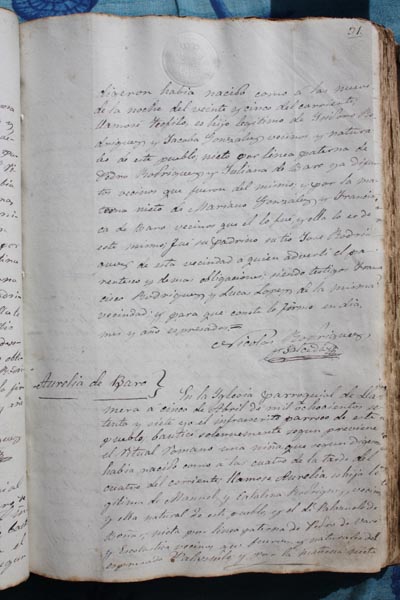 31
dijeron habia nacido como a las nueve
de la noche del veinte y cinco del corriente,
llamose Teofilo, es hijo legitimo de Isidoro Ro-
driguez y Jacoba Gonzalez vecinos y natura-
les de este pueblo, nieto por linea paterna de
Pedro Rodriguez y Juliana de Baro ya difun-
tos vecinos que fueron del mismo, y por la ma-
terna nieto de Mariano Gonzalez y Francis-
ca de Baro vecinos que el lo fué y ella lo es de
este mismo, fué su padrino su tio José Rodri-
guez de esta vecindad a quien advertí el pa-
rentesco y demas obligaciones, siendo testigos Fran-
cisco Rodriguez y Lucas Lopez de la misma
vecindad: y para que conste lo firmo en dia,
mes y año espresados=
Nicolas Rodriguez
Aurelia de Baro
En la Iglesia parroquial de
a cinco de Abril de mil ochocientos se-
tenta y siete yo el infrascrito parroco de este
pueblo, bauticé solemnemente segun previene
el Ritual Romano una niña que segun dijeron
habia nacido como a las cuatro de la tarde del
cuatro del corriente, llamose Aurelia, es hija le-
gitima de Manuel y Catalina Rodriguez, vecinos
y ella natural de este pueblo y el de
nieta por linea paterna de Pedro de Baro
y vecinos que fueron y naturales del
espresado y por la materna nieta